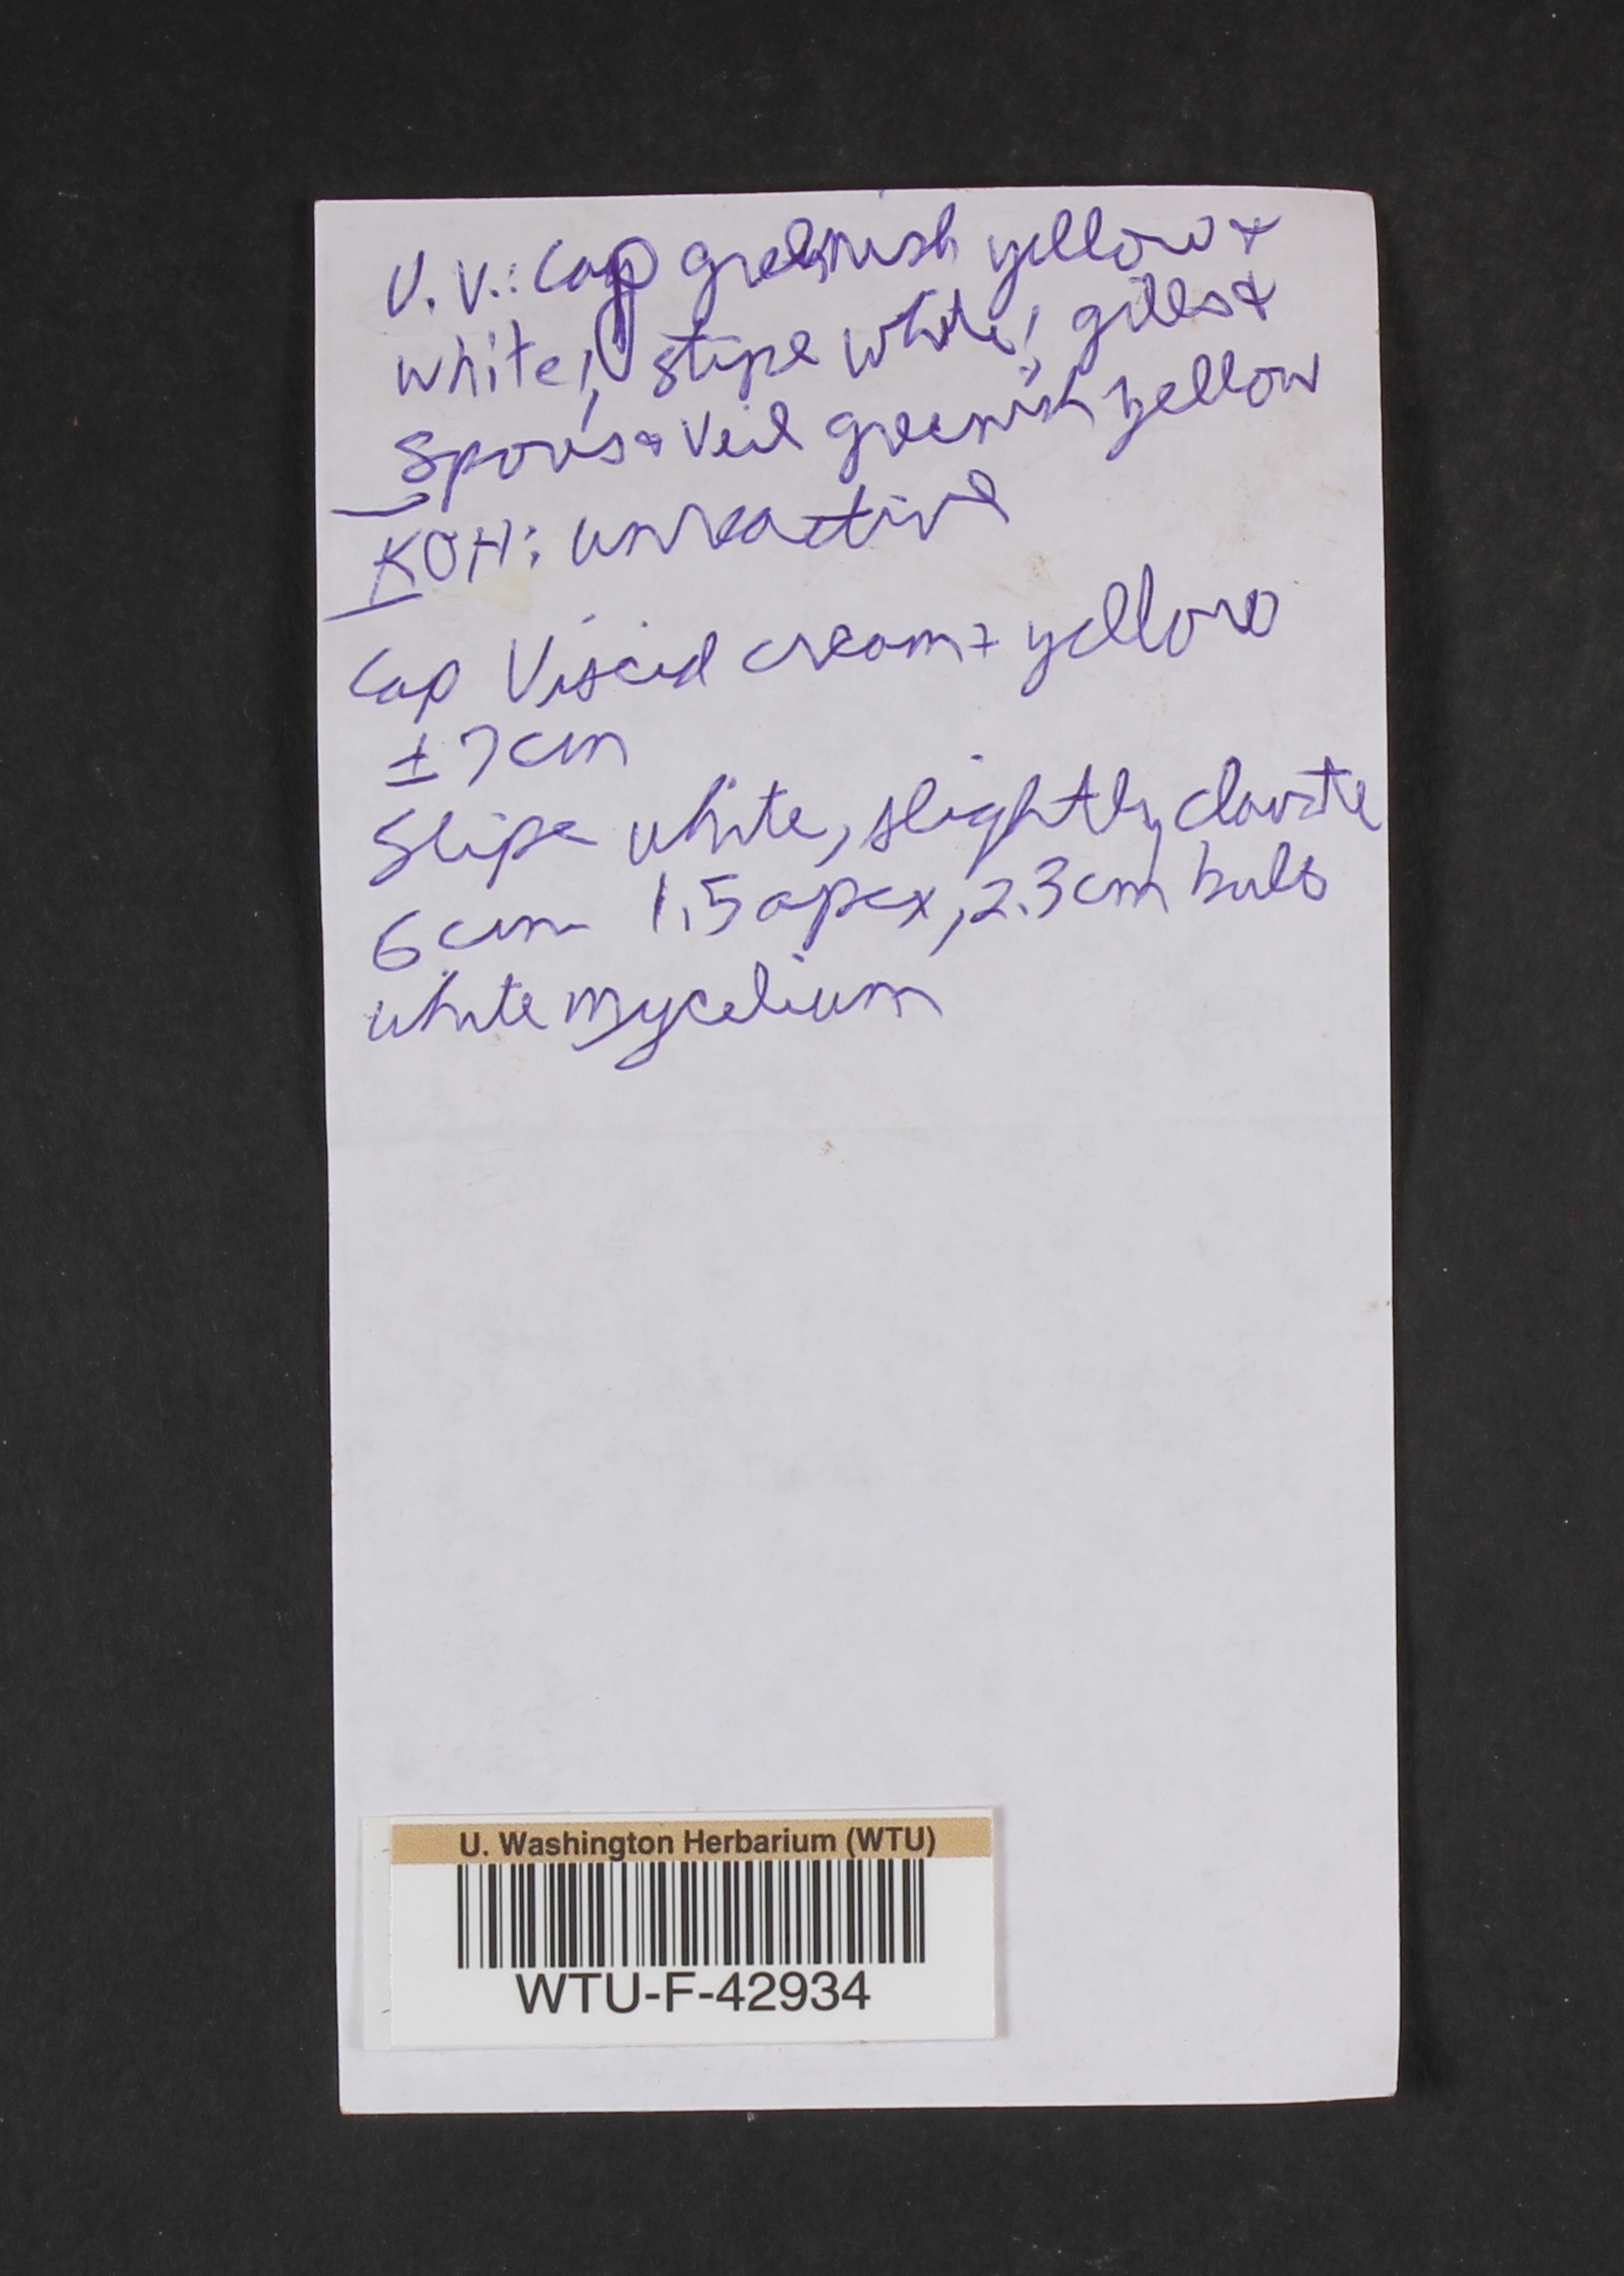 U.V.: Cap greenish yellow &
white; stipe white; gills &
Spores & Veil greenish yellow
KOH: unreactive
Cap Viscid cream + yellow
± 7cm
Stipe white, slightly clavate
6cm 1.5 apex, 2.3cm bulb
white mycelium
U. Washington Herbarium (WTU)
WTU-F-42934